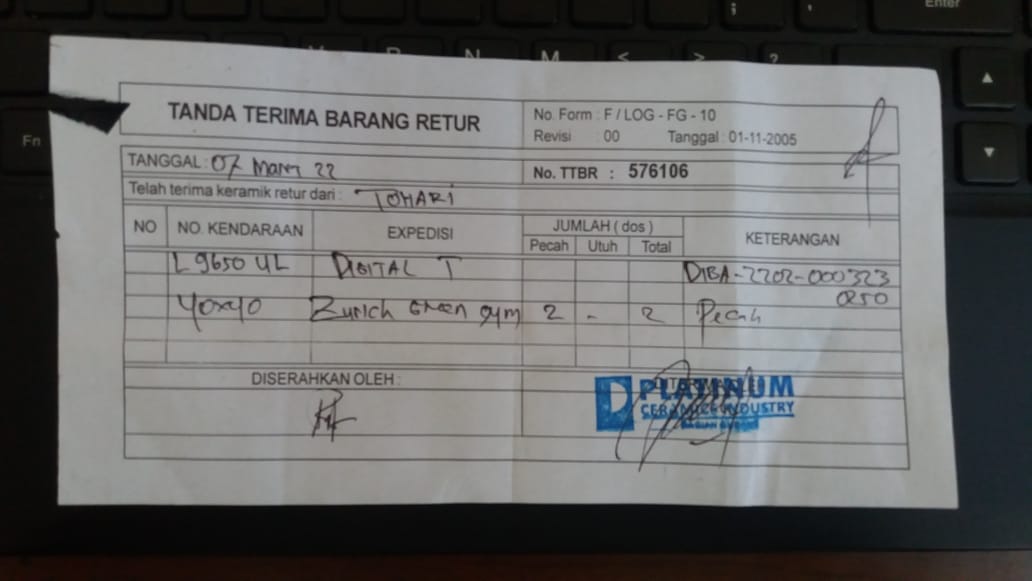 TANDA TERIMA BARANG RETUR
No. Form : F / LOG - FG - 10
Revisi : 00 Tanggal : 01-11-2005
TANGGAL : 07 Maret 22
No. TTBR : 576106
Telah terima keramik retur dari : TOHARI
NO NO. KENDARAAN EXPEDISI JUMLAH ( dos ) KETERANGAN
Pecah Utuh Total
L 9650 UL DIGITAL T DIBA-2202-000323
0250
40x40 Zurich Green 2 - 2 Pecah
DISERAHKAN OLEH :
PLATINUM
CERAMICS INDUSTRY